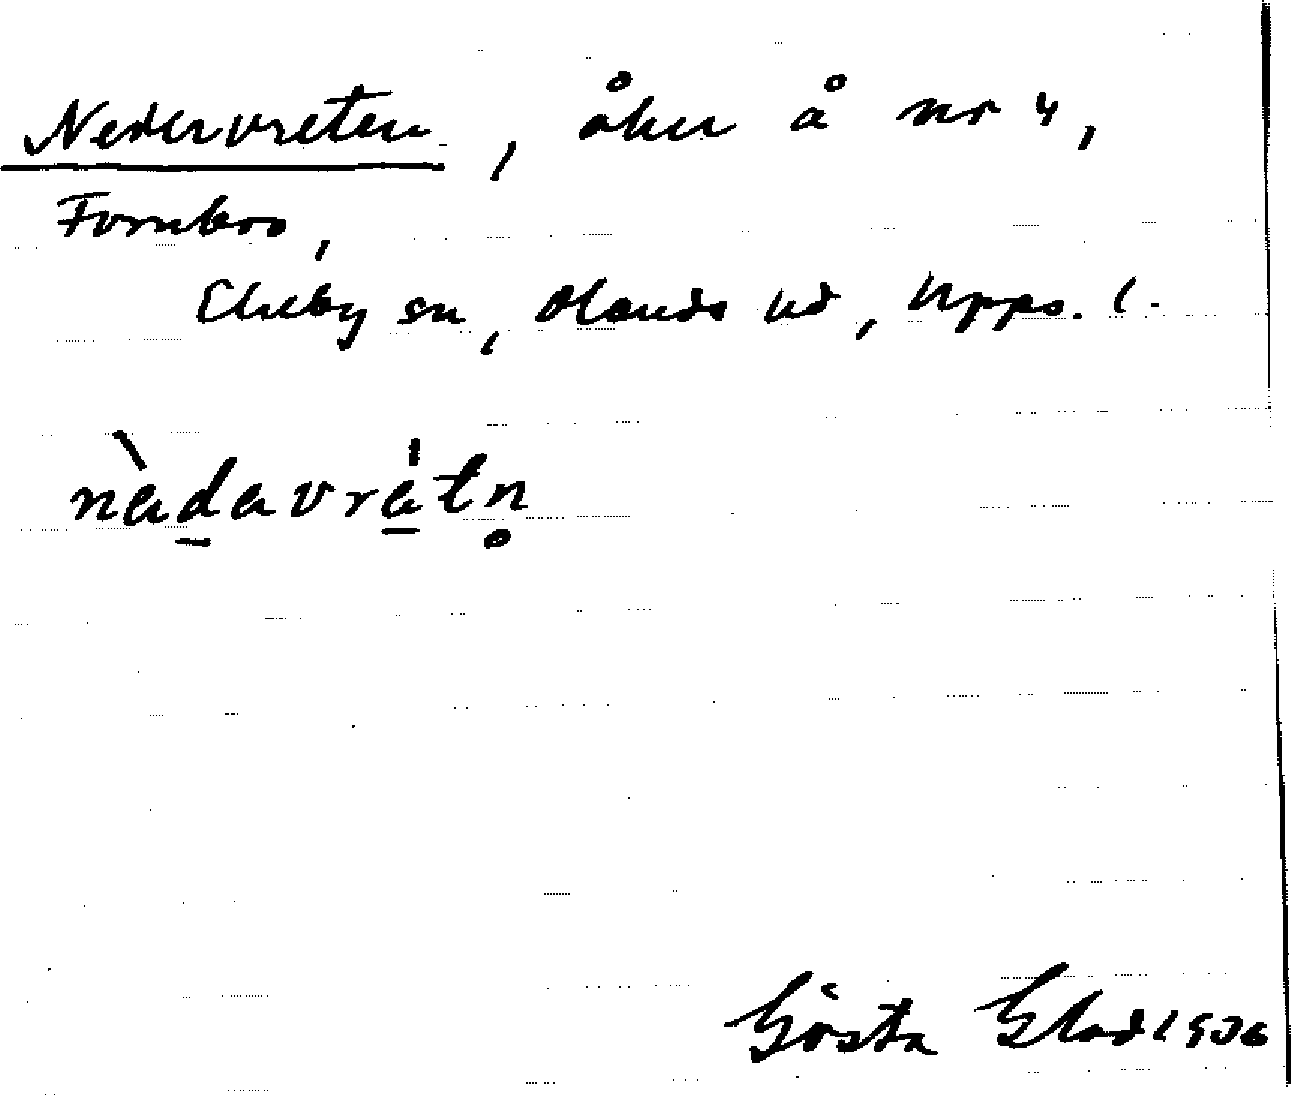 Nedervreten, åker å nr 4,
Fornbro,
Ekeby sn, Olands hd, Upps. l.
nàdavrátn̥
Gösta Glad 1936